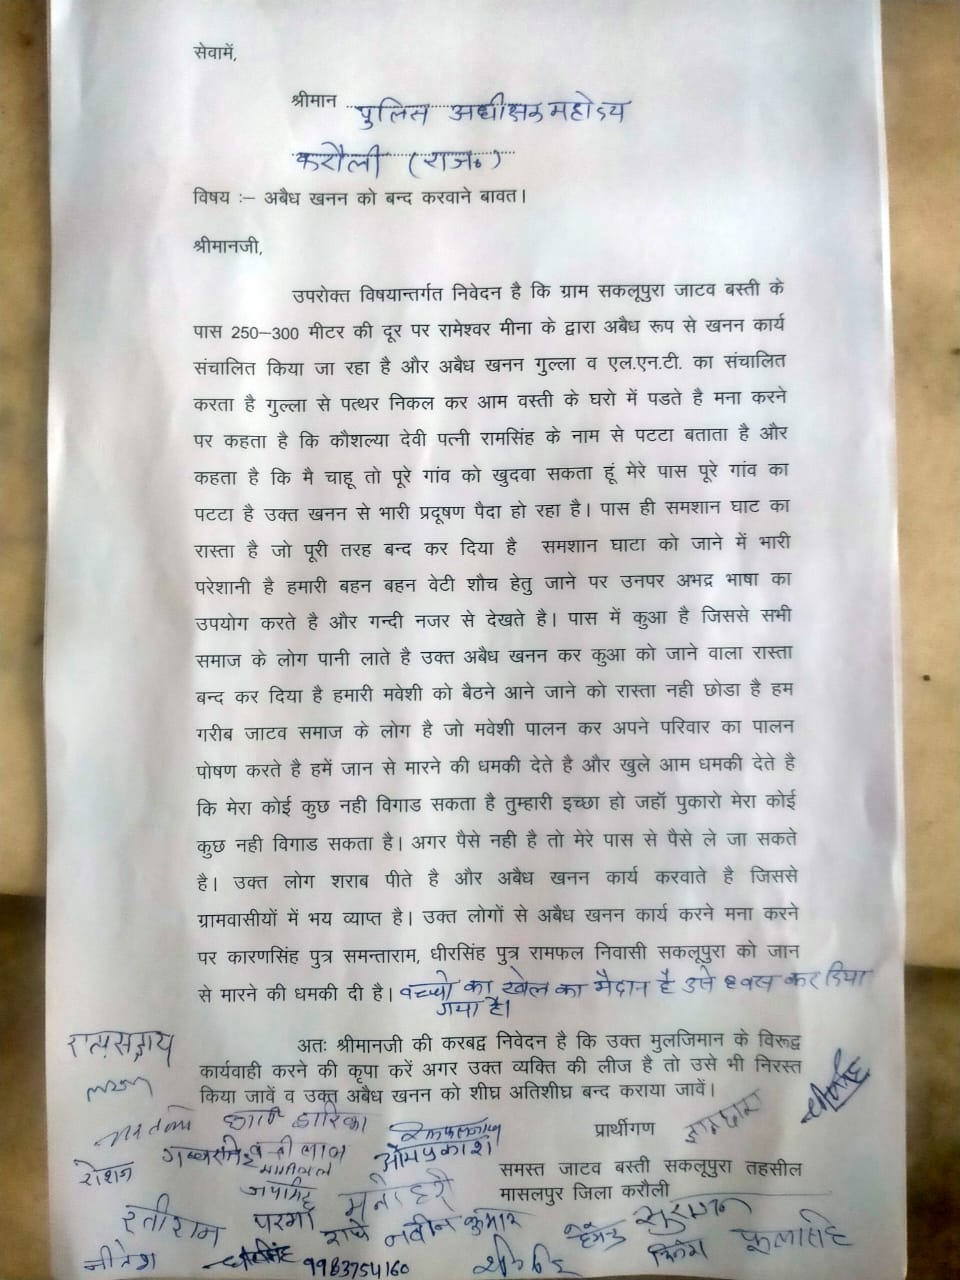 सेवामें,
श्रीमान पुलिस अधीक्षक महोदय
करौली (राज०)
विषय :– अबैध खनन को बन्द करवाने बावत।
श्रीमानजी,
उपरोक्त विषयान्तर्गत निवेदन है कि ग्राम सकलूपुरा जाटव बस्ती के
पास 250–300 मीटर की दूर पर रामेश्वर मीना के द्वारा अबैध रूप से खनन कार्य
संचालित किया जा रहा है और अबैध खनन गुल्ला व एल.एन.टी. का संचालित
करता है गुल्ला से पत्थर निकल कर आम वस्ती के घरो में पडते है मना करने
पर कहता है कि कौशल्या देवी पत्नी रामसिंह के नाम से पटटा बताता है और
कहता है कि मै चाहू तो पूरे गांव को खुदवा सकता हूं मेरे पास पूरे गांव का
पटटा है उक्त खनन से भारी प्रदूषण पैदा हो रहा है। पास ही समशान घाट का
रास्ता है जो पूरी तरह बन्द कर दिया है समशान घाटा को जाने में भारी
परेशानी है हमारी बहन बहन वेटी शौच हेतु जाने पर उनपर अभद्र भाषा का
उपयोग करते है और गन्दी नजर से देखते है। पास में कुआ है जिससे सभी
समाज के लोग पानी लाते है उक्त अबैध खनन कर कुआ को जाने वाला रास्ता
बन्द कर दिया है हमारी मवेशी को बैठने आने जाने को रास्ता नही छोडा है हम
गरीब जाटव समाज के लोग है जो मवेशी पालन कर अपने परिवार का पालन
पोषण करते है हमें जान से मारने की धमकी देते है और खुले आम धमकी देते है
कि मेरा कोई कुछ नही विगाड सकता है तुम्हारी इच्छा हो जहॉ पुकारो मेरा कोई
कुछ नही विगाड सकता है। अगर पैसे नही है तो मेरे पास से पैसे ले जा सकते
है। उक्त लोग शराब पीते है और अबैध खनन कार्य करवाते है जिससे
ग्रामवासीयों में भय व्याप्त है। उक्त लोगों से अबैध खनन कार्य करने मना करने
पर कारणसिंह पुत्र समन्ताराम, धीरसिंह पुत्र रामफल निवासी सकलूपुरा को जान
से मारने की धमकी दी है। वच्चो का खेल का मैदान है उसे ध्वस कर दिया
गया है।
अतः श्रीमानजी की करबद्व निवेदन है कि उक्त मुलजिमान के विरूद्व
कार्यवाही करने की कृपा करें अगर उक्त व्यक्ति की लीज है तो उसे भी निरस्त
किया जावें व उक्त अबैध खनन को शीघ्र अतिशीघ्र बन्द कराया जावें।
प्रार्थीगण
समस्त जाटव बस्ती सकलूपुरा तहसील
मासलपुर जिला करौली
ओमप्रकाश
रोशन
मनोहरी
रतीराम
राधे नवीन कुमार
नीतेश
9983754160